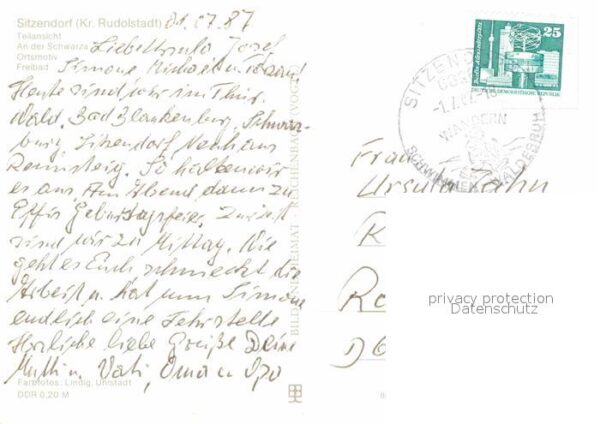 Sitzendorf (Kr. Rudolstadt)
01.07.87
Teilansicht
An der Schwarza
Ortsmotiv
Freibad
Liebe Ursula Josef
Simone Michael u.
Heute sind wir im Thür.
Wald. Bad Blankenburg, Schwarz-
burg, Sitzendorf Neuhaus
Rennsteig. So halten wir
es aus. Am Abend dann zu
Effis Geburtstagsfeier. Zurzeit
sind wir zu Mittag. Wie
geht es Euch schmeckt die
Arbeit u. hat nun Simone
endlich eine Lehrstelle
Herzliche liebe Grüße Deine
Mutti u. Vati, Oma u Opa
Farbfotos: Lindig, Unstadt
DDR 0,20 M
BILD UND HEIMAT · REICHENBACH (VOGTL)
25
DEUTSCHE DEMOKRATISCHE REPUBLIK
SITZEN
WANDERN
SCHWIMMEN WALDESRUH
Frau
Ursula
privacy protection
Datenschutz